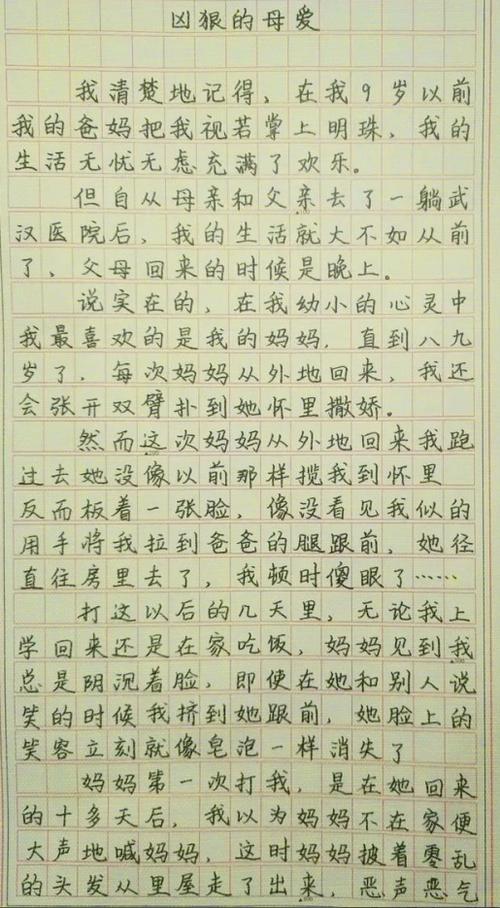 凶狠的母爱
我清楚地记得，在我9岁以前
我的爸妈把我视若掌上明珠，我的
生活无忧无虑充满了欢乐。
但自从母亲和父亲去了一躺武
汉医院后，我的生活就大不如从前
了，父母回来的时候是晚上。
说实在的，在我幼小的心灵中
我最喜欢的是我的妈妈，直到八九
岁了，每次妈妈从外地回来，我还
会张开双臂扑到她怀里撒娇。
然而这次妈妈从外地回来我跑
过去她没像以前那样揽我到怀里
反而板着一张脸，像没看见我似的
用手将我拉到爸爸的腿跟前，她径
直往房里去了，我顿时傻眼了……
打这以后的几天里，无论我上
学回来还是在家吃饭，妈妈见到我
总是阴沉着脸，即使在她和别人说
笑的时候我挤到她跟前，她脸上的
笑容立刻就像皂泡一样消失了
妈妈第一次打我，是在她回来
的十多天后，我以为妈妈不在家便
大声地喊妈妈，这时妈妈披着零乱
的头发从里屋走了出来，恶声恶气